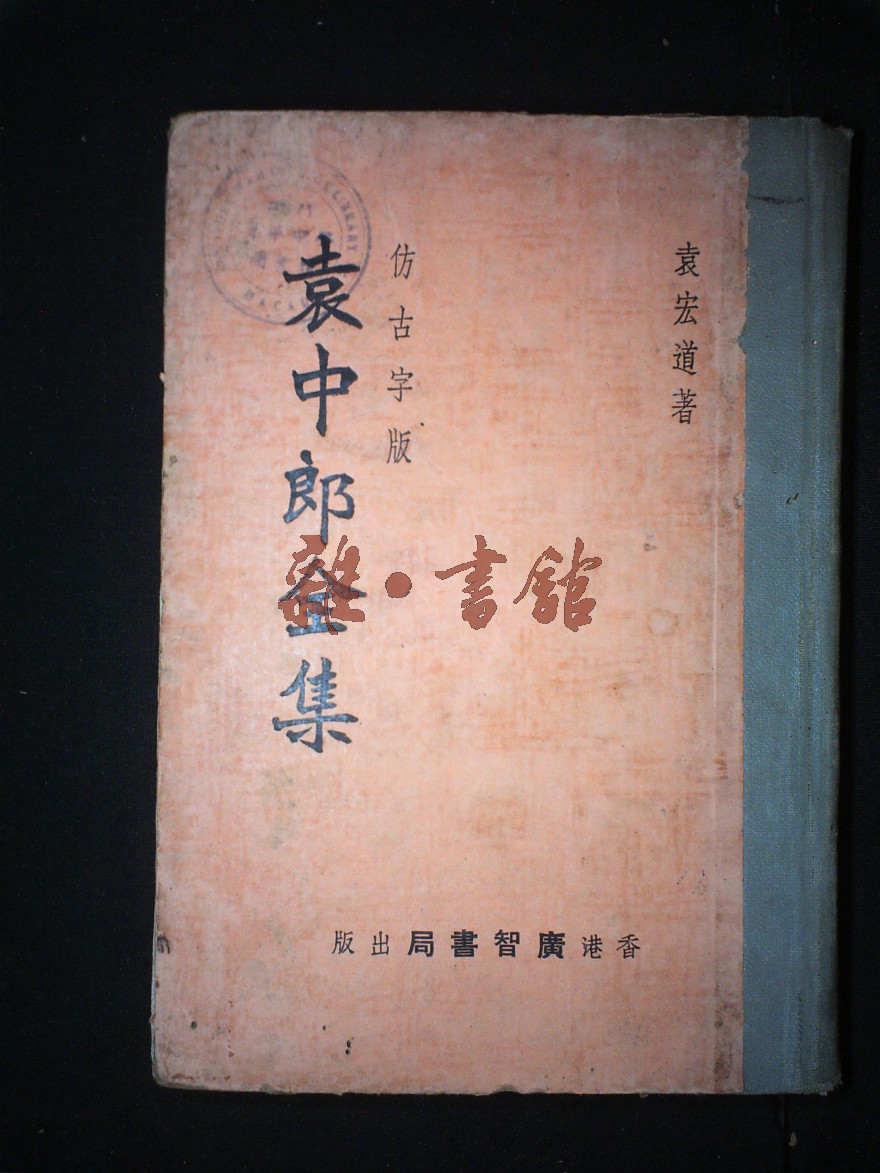 袁宏道著
仿古字版
袁中郎全集
香港廣智書局出版
雜·書館